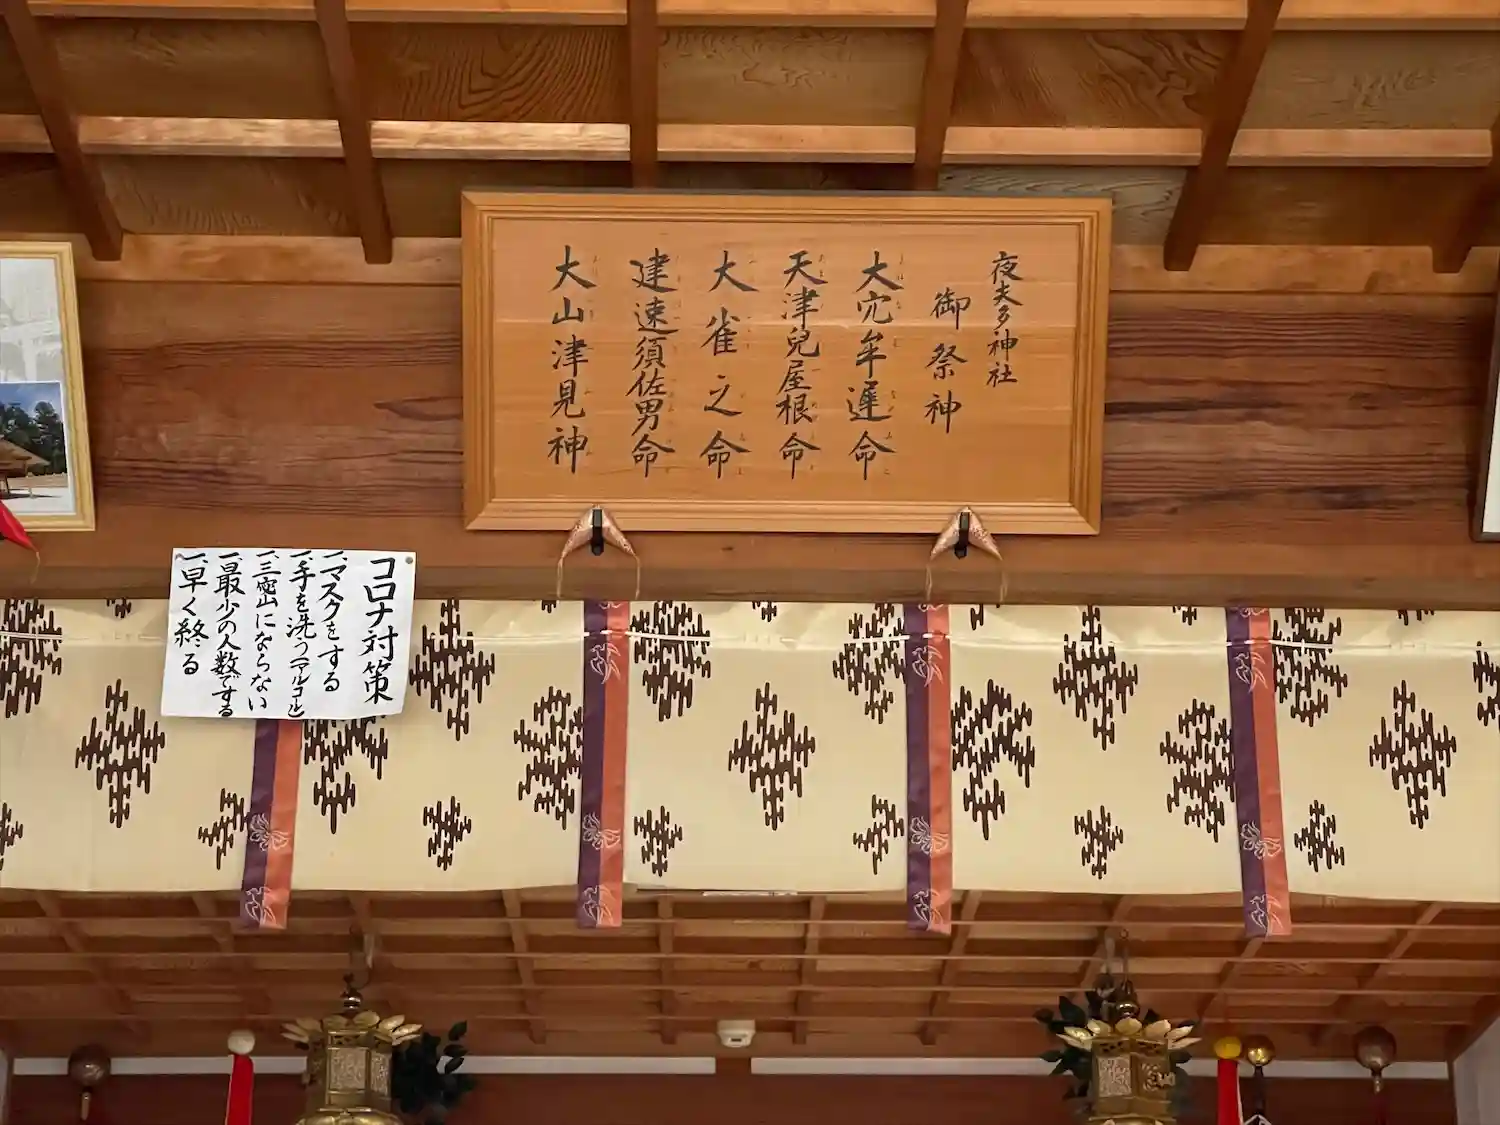 夜夫多神社
御祭神
大穴牟遅命
天津兒屋根命
大雀之命
建速須佐男命
大山津見神
コロナ対策
一、マスクをする
一、手を洗う(アルコール)
一、三密にならない
一、最少の人数でする
一、早く終る